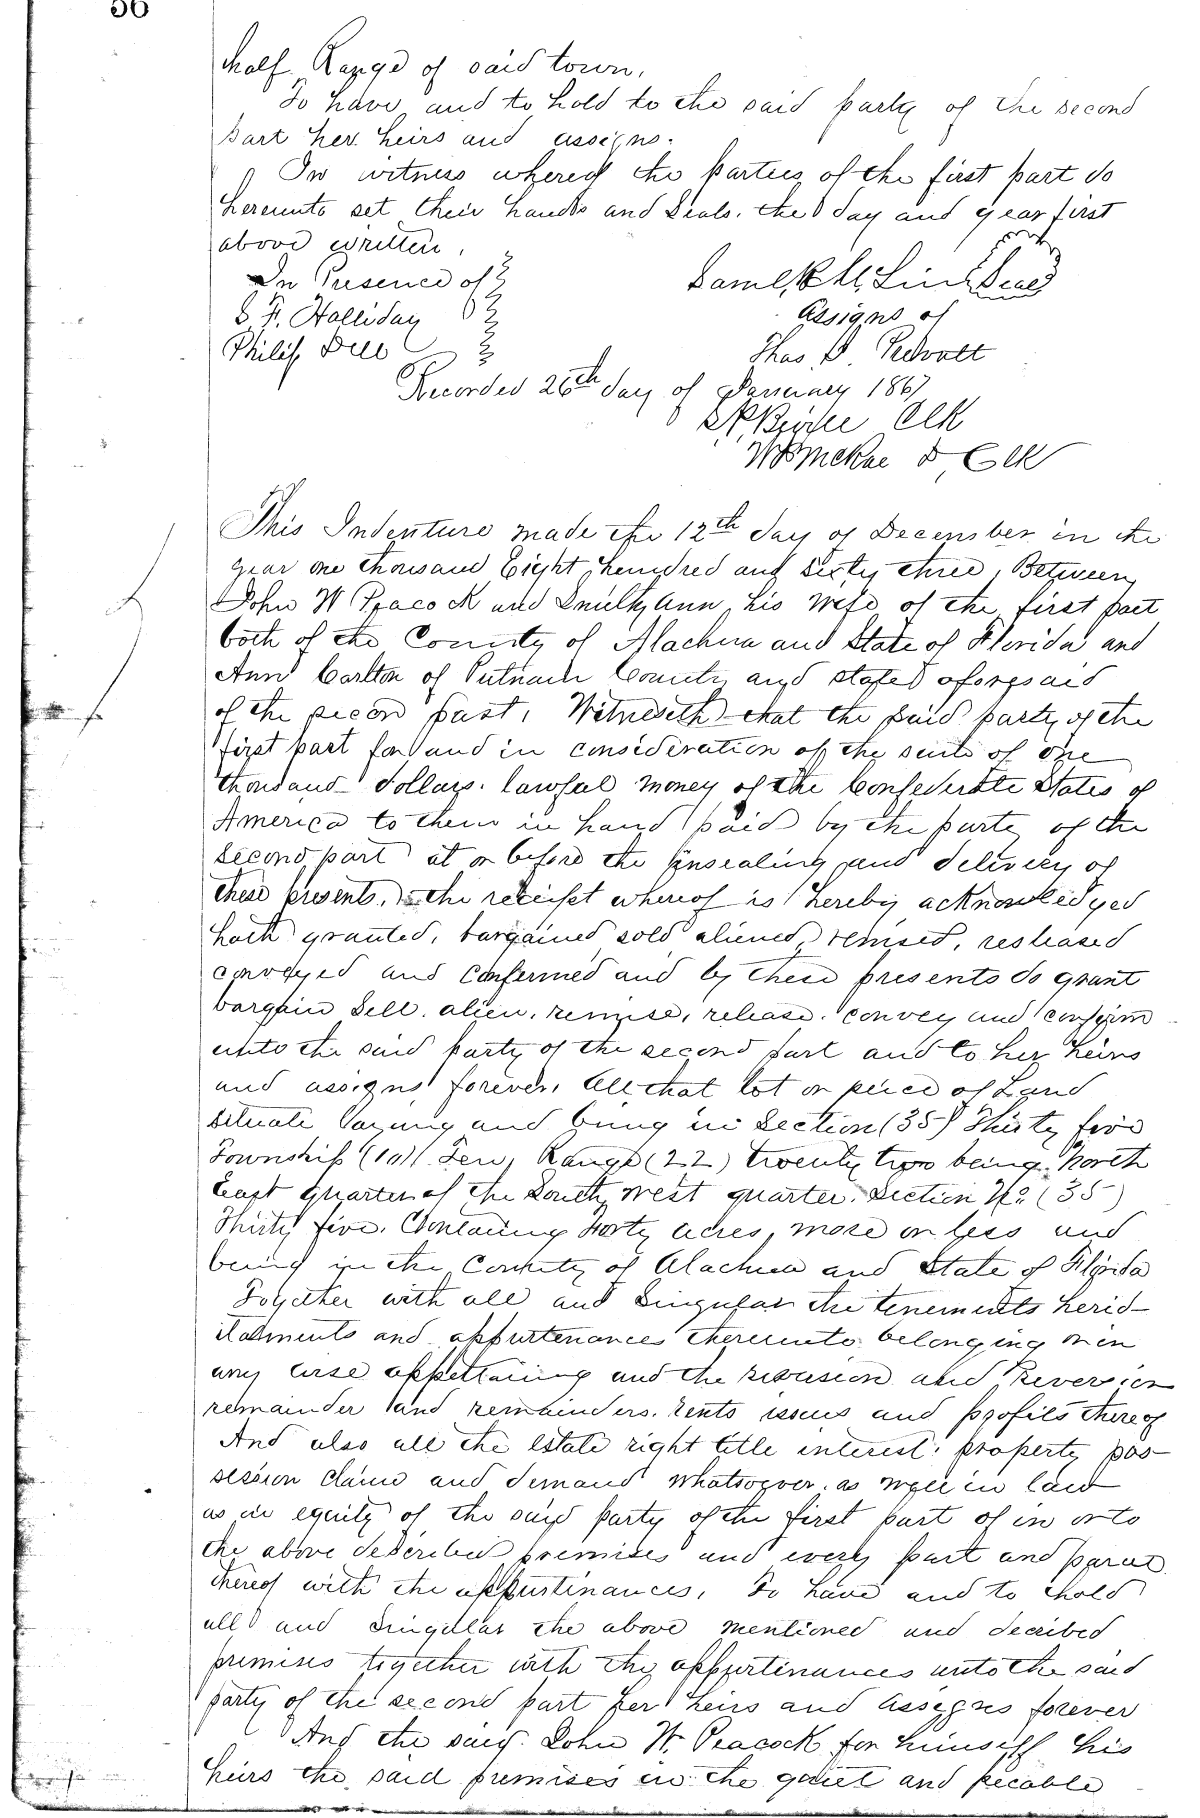 56
half Range of said town,
To have and to hold to the said party of the second
part her heirs and assigns.
In witness whereof the parties of the first part do
hereunto set their hands and Seals. the day and year first
above written.
In Presence of
S. F. Halliday
Philip Dell
Saml. Seal
Assigns of
Thos. D.
Recorded 26th day of January 1867
Clk
W B McRae D Clk
This Indenture made the 12th day of December in the
year one thousand Eight hundred and Sixty three, Between
John W Peacock and Ann his wife of the first part
both of the County of Alachua and State of Florida and
Ann Carlton of Putnam County and state aforesaid
of the secon part, Witneseth that the said party of the
first part for and in consideration of the sum of One
thousand dollars. lawful money of the Confederate States of
America to them in hand paid by the party of the
second part at or before the ensealing and delivery of
these presents, the receipt whereof is hereby acknowledged
hath granted, bargained sold aliened, remised, released
conveyed and confermed and by these presents do grant
bargain Sell. alien, remise, release. convey and confirm
unto the said party of the second part and to her heirs
and assigns forever, All that lot or peice of Land
situate laying and being in Section (35) Thirty five
Township (10) Ten, Range (22) twenty two being North
East quarter of the South West quarter. Section No. (35)
Thirty five. Containing Forty acres, more or less and
being in the County of Alachua and State of Florida
Together with all and Singular the tenements herid-
itaments and appurtenances thereunto belonging or in
any wise appertaining and the revision and Reversion
remainder and remainders. rents issues and profits thereof
And also all the Estate right title interest property pos-
session claim and demand whatsoever. as well in law
as in equity of the said party of the first part of in or to
the above described premises and every part and parcel
thereof with the appurtinances, To have and to hold
all and Singular the above mentioned and decribed
premises together with the appurtinances unto the said
party of the second part her heirs and Assignes forever
And the said John W. Peacock for himself his
heirs the said premises in the quiet and pecable